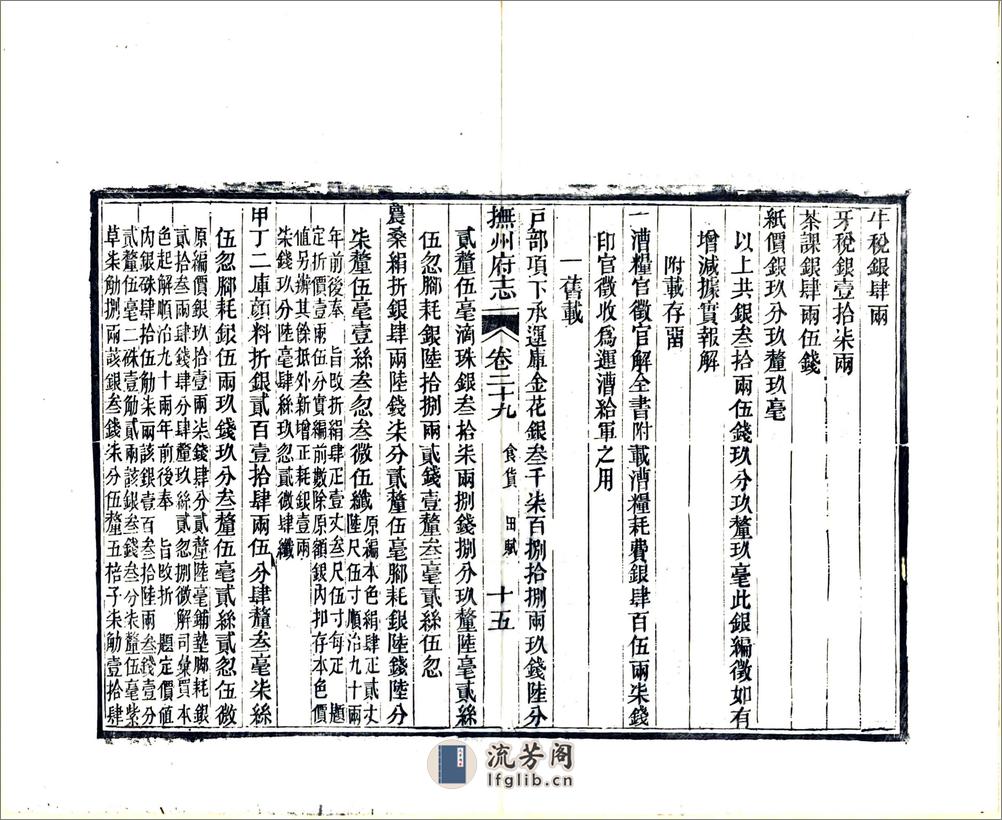 牛稅銀肆兩
牙稅銀壹拾柒兩
茶課銀肆兩伍錢
紙價銀玖分玖釐玖毫
以上共銀叁拾兩伍錢玖分玖釐玖毫此銀編徵如有
增減據實報解
附載存畱
一漕糧官徵官解全書附載漕糧耗費銀肆百伍兩柒錢
印官徵收爲運漕給軍之用
一舊載
戸部項下承運庫金花銀叁千柒百捌拾捌兩玖錢陸分
撫州府志
卷二十九
食貨
田賦
十五
貳釐伍毫滴珠銀叁拾柒兩捌錢捌分玖釐陸毫貳絲
伍忽腳耗銀陸拾捌兩貳錢壹釐叁毫貳絲伍忽
農桑絹折銀肆兩陸錢柒分貳釐伍毫腳耗銀陸錢陸分
柒釐伍毫壹絲叁忽叁微伍纖
原編本色絹肆疋貳丈
陸尺伍寸順治九十兩
年前後奉 旨改折絹肆疋壹丈叁尺伍寸每疋 題
定折價壹兩伍分實編前數除原額銀內扣存本色價
值另辦其餘振外新增正耗銀壹兩
柒錢玖分陸毫肆絲玖忽貳微肆纖
甲丁二庫顔料折銀貳百壹拾肆兩伍分肆釐叁毫柒絲
伍忽腳耗銀伍兩玖錢玖分叁釐伍毫貳絲貳忽伍微
原編價銀玖拾壹兩柒錢肆分貳釐陸毫鋪墊脚耗銀
貳拾叁兩肆錢肆分肆釐玖絲貳忽捌微解司彙買本
色起解順治九十兩年前後奉 旨改折 題定價值
內銀硃肆拾伍觔柒兩該銀壹百叁拾陸兩叁錢壹分
貳釐伍毫二硃壹觔貳兩該銀叁錢叁分柒釐伍毫紫
草柒觔捌兩該銀叁錢柒分伍釐五棓子柒觔壹拾肆
流芳阁
lfglib.cn